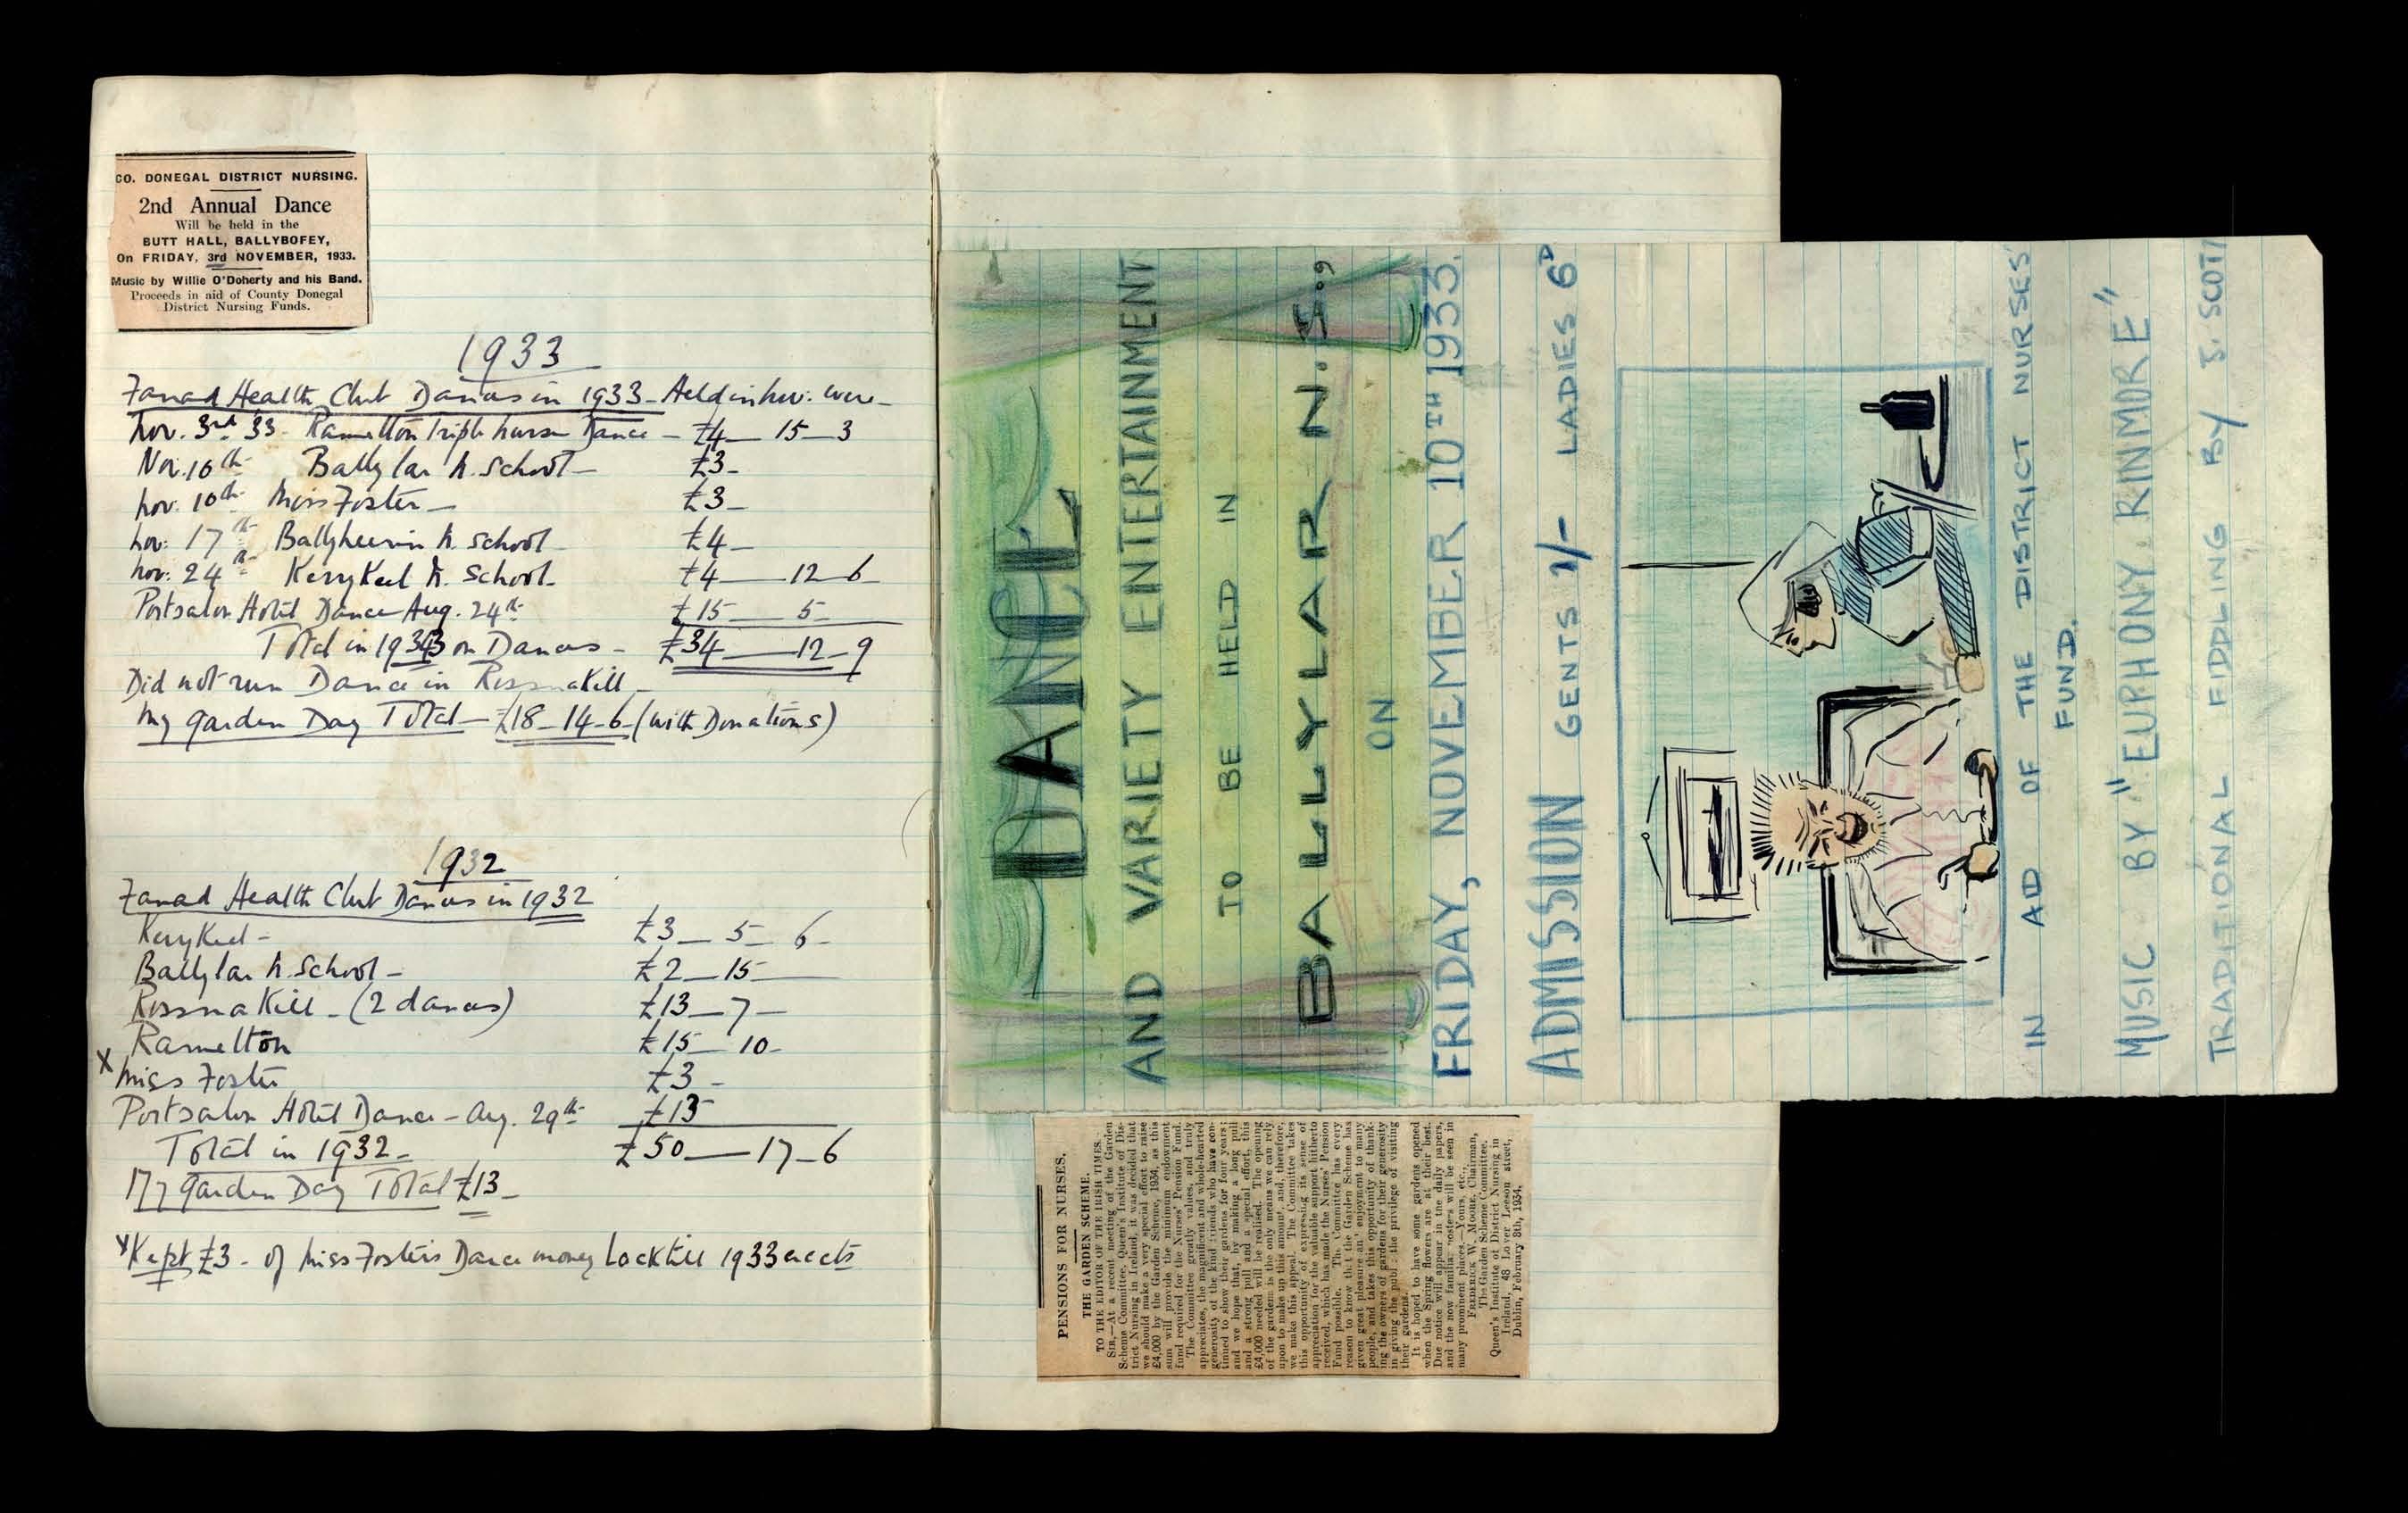 CO. DONEGAL DISTRICT NURSING.
2nd Annual Dance
Will be held in the
BUTT HALL, BALLYBOFEY,
On FRIDAY, 3rd NOVEMBER, 1933.
Music by Willie O'Doherty and his Band.
Proceeds in aid of County Donegal
District Nursing Funds.
1933
Fanad Health Club Dances in 1933 - Held in Nov: were -
Nov. 3rd 33 - Ramelton Triple Nurse Dance - £4 - 15 - 3
Nov. 10th Ballylar N. School - £3 -
Nov. 10th Miss Foster - £3 -
Nov: 17th Ballyheerin N. School - £4 -
Nov: 24th Kerrykeel N. School - £4 - 12 - 6
Portsalon Hotel Dance Aug. 24th £15 - 5 -
Total in 1933 on Dances - £34 - 12 - 9
Did not run Dance in Rossnakill -
My Garden Day Total - £18 - 14 - 6 (with Donations)
1932
Fanad Health Club Dances in 1932
Kerrykeel - £3 - 5 - 6 -
Ballylar N. School - £2 - 15 -
Rossnakill - (2 dances) £13 - 7 -
Ramelton £15 - 10 -
x Miss Foster £3 -
Portsalon Hotel Dance - Aug. 29th £13
Total in 1932 - £50 - 17 - 6
My Garden Day Total £13 -
x Kept £3 - of Miss Foster's Dance money back till 1933 accts
DANCE
AND VARIETY ENTERTAINMENT
TO BE HELD IN
BALLYLAR N.S.,
ON
FRIDAY, NOVEMBER 10TH 1933.
ADMISSION GENTS 1/- LADIES 6D
IN AID OF THE DISTRICT NURSES'
FUND.
MUSIC BY "EUPHONY. RINMORE"
TRADITIONAL FIDDLING BY J. SCOTT
PENSIONS FOR NURSES.
THE GARDEN SCHEME.
TO THE EDITOR OF THE IRISH TIMES.
SIR,—At a recent meeting of the Garden
Scheme Committee, Queen's Institute of Dis-
trict Nursing in Ireland, it was decided that
we should make a very special effort to raise
£4,000 by the Garden Scheme, 1934, as this
sum will provide the minimum endowment
fund required for the Nurses' Pension Fund.
The Committee greatly values, and truly
appreciates, the magnificent and whole-hearted
generosity of the kind friends who have con-
tinued to show their gardens for four years;
and we hope that, by making a long pull
and a strong pull and a special effort, this
£4,000 needed will be realised. The opening
of the gardens is the only means we can rely
upon to make up this amount, and, therefore,
we make this appeal. The Committee takes
this opportunity of expressing its sense of
appreciation for the valuable support hitherto
received, which has made the Nurses' Pension
Fund possible. The Committee has every
reason to know that the Garden Scheme has
given great pleasure and enjoyment to many
people, and takes this opportunity of thank-
ing the owners of gardens for their generosity
in giving the public the privilege of visiting
their gardens.
It is hoped to have some gardens opened
when the Spring flowers are at their best.
Due notice will appear in the daily papers,
and the now familiar posters will be seen in
many prominent places.—Yours, etc.,
FREDERICK W. MOORE, Chairman,
The Garden Scheme Committee.
Queen's Institute of District Nursing in
Ireland, 48 Lower Leeson street,
Dublin, February 8th, 1934.